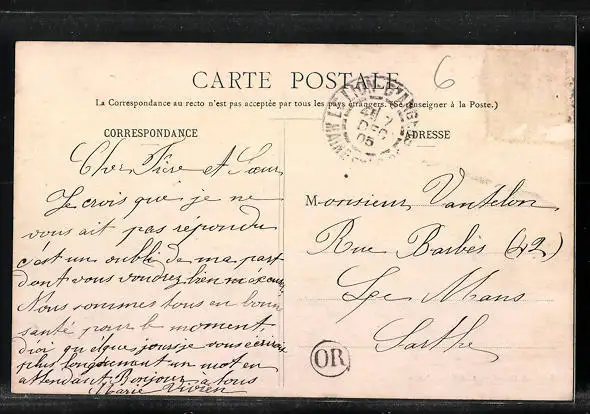 6
CARTE POSTALE
La Correspondance au recto n'est pas acceptée par tous les pays étrangers. (Se renseigner à la Poste.)
CORRESPONDANCE
Cher Frère et Sœur
Je crois que je ne
vous ait pas répondu
c'est un oubli de ma part
dont vous voudrez bien
Nous sommes tous en bonne
santé pour le moment
d'ici quelque jours je vous écrirai
plus longuement un mot en
attendant Bonjour a tous
Marie Vivien
LE LION D'ANGERS
7
DEC
05
ADRESSE
Monsieur Vantelon
Rue Barbès (42)
Le Mans
Sarthe
OR